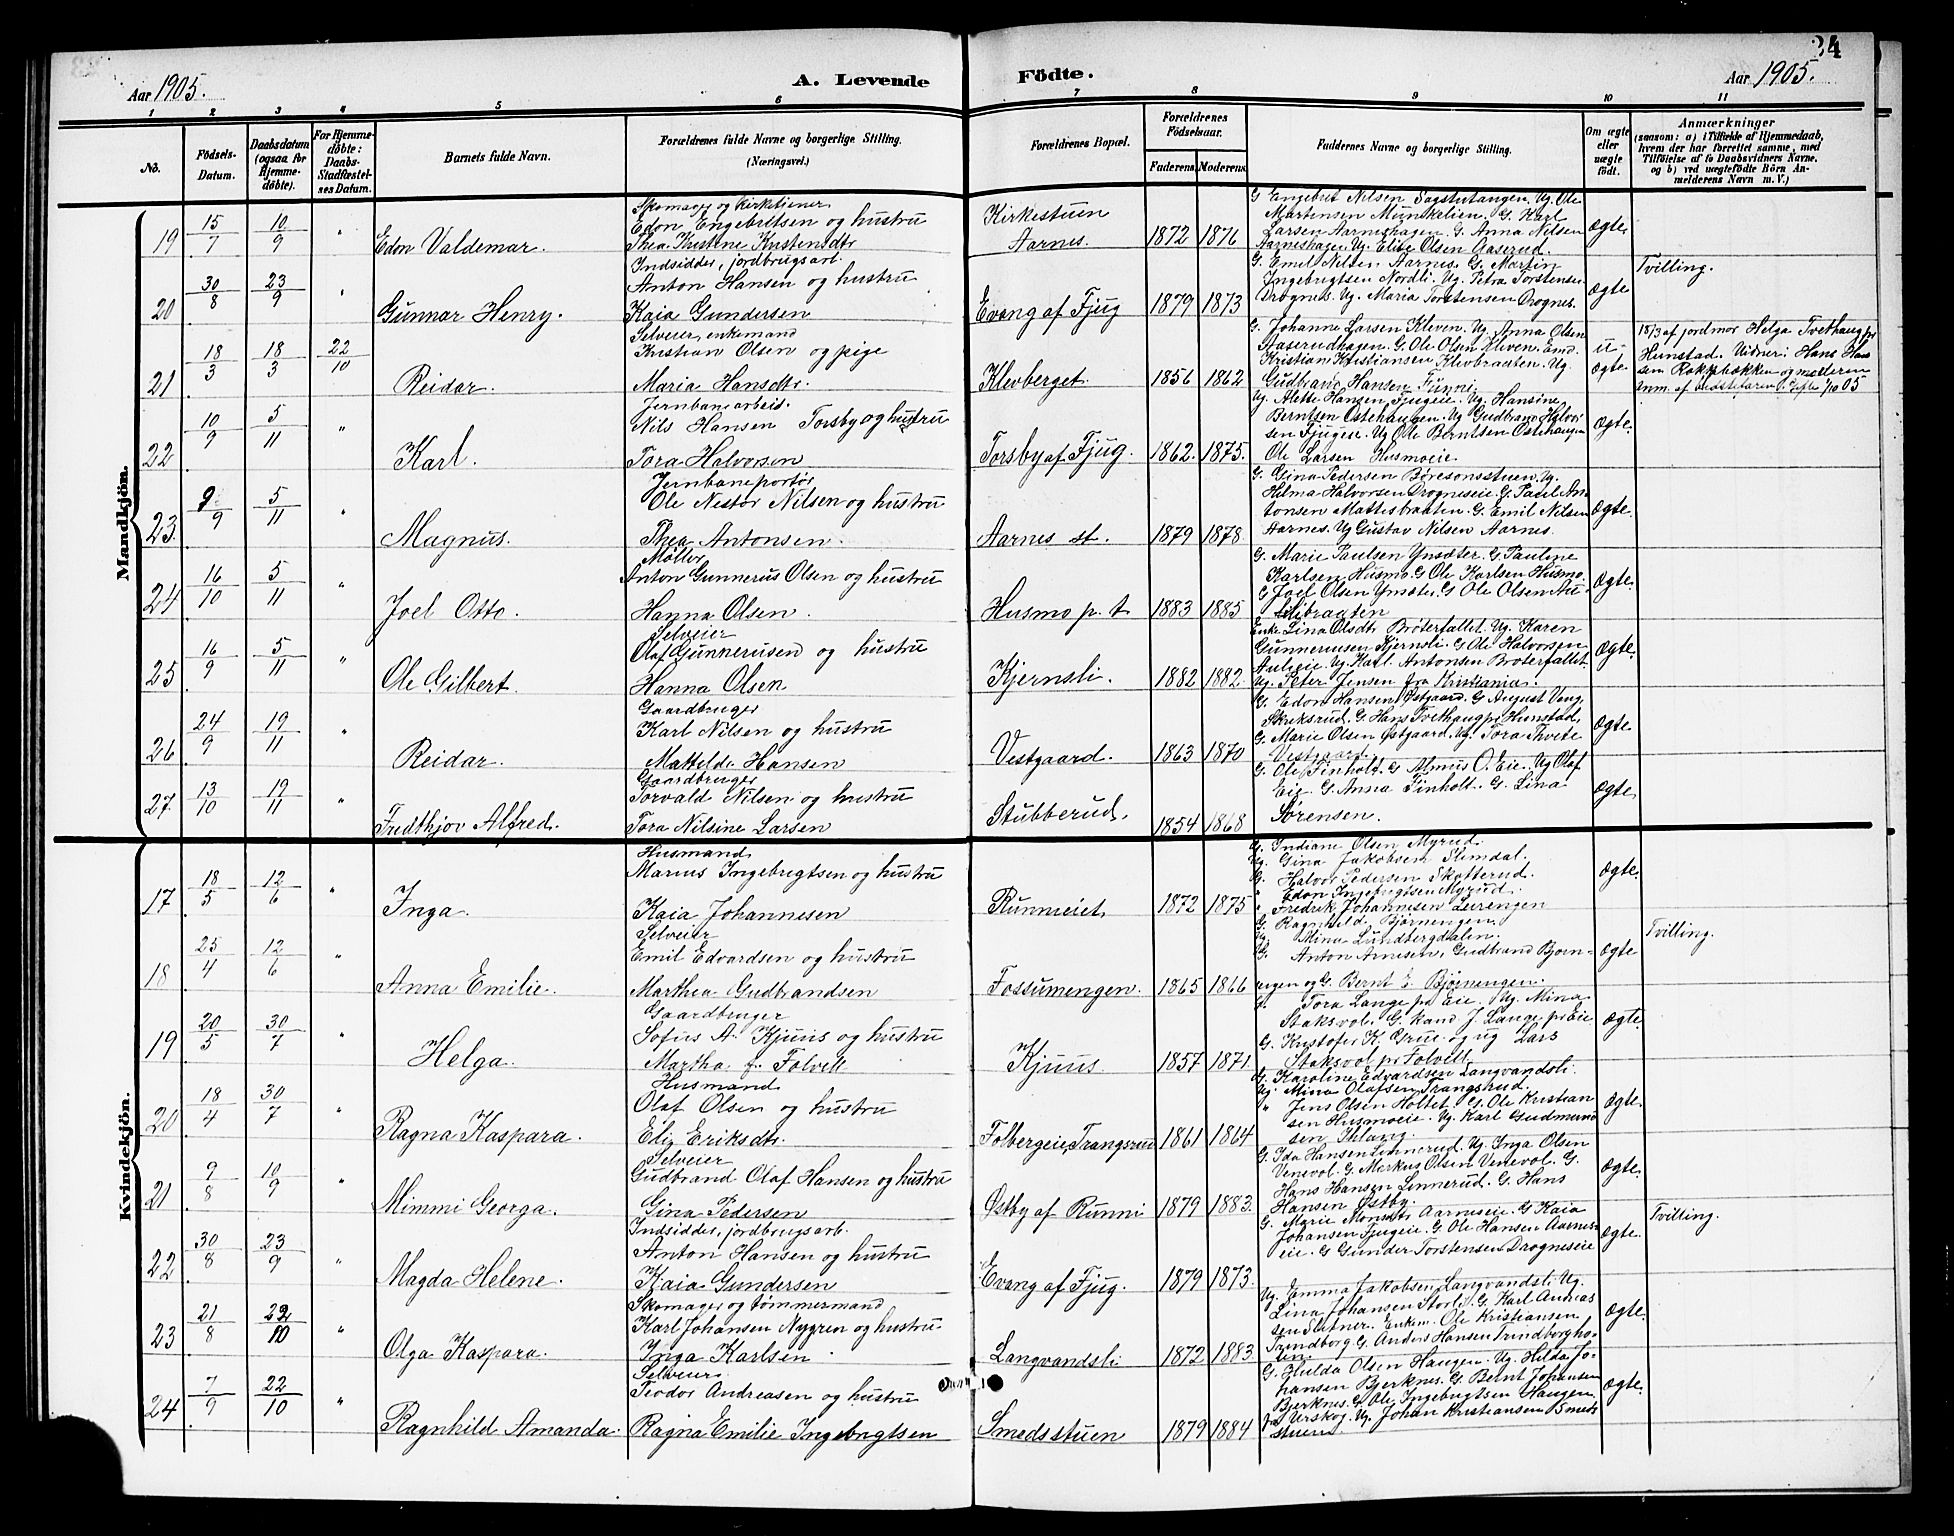 34
Aar 1905.
A. Levende
Födte.
Aar 1905.
1 2 3 4 5 6 7 8 9 10 11
No.
Födsels-
Datum.
Daabsdatum
(ogsaa for
Hjemme-
döbte).
For Hjemme-
döbte:
Daabs-
Stadfæstel-
ses Datum.
Barnets fulde Navn.
Forældrenes fulde Navne og borgerlige Stilling.
(Næringsvei.)
Forældrenes Bopæl.
Forældrenes
Födselsaar.
Faderens. Moderens.
Faddernes Navne og borgerlige Stilling.
Om ægte
eller
uægte
födt.
Anmærkninger
(saasom: a) i Tilfælde af Hjemmedaab,
hvem der har forrettet samme, med
Tilföielse af to Daabsvidners Navne.
og b) ved uægtefödte Börn An-
melderens Navn m. V.)
Mandkjön.
19 15/7 10/9 " Edon Valdemar.
Skomager og kirketjener
Edon Engebretsen og hustru
Thea Kristine Kristensdtr
Kirkestuen
Aarnes.
1872 1876
G Engebret Nilsen Sagstutangen. Ug. Ole
Martensen Munkelien. G. Karl
Larsen Aarneshagen. G. Anna Nilsen
Aarneshagen. Ug. Elise Olsen Aaserud.
ægte.
20 30/8 23/9 " Gunnar Henry.
Indsidder, jordbrugsarb.
Anton Hansen og hustru
Kaia Gundersen
Evang af Fjug
1879 1873
G. Emil Nilsen Aarnes. G. Martin
Ingebrigtsen Nordli. Ug. Petra Torstensen
Drognes. Ug. Maria Torstensen Drognes.
ægte
Tvilling.
21 18/3 18/3 22/10 Reidar.
Selveier, enkemand
Kristian Olsen og pige
Maria Hansdtr.
Klevberget.
1856 1862
G. Johanne Larsen Kleven. Ug. Anna Olsen
Aaserudhagen. G. Ole Olsen Kleven. Enk.
Kristian Kristiansen Klevbraaten. Ug.
Gudbrand Hansen Funni.
u-
ægte
18/3 af jordmor Helga Tvethaug pr
Hunstad. Vidner: Hans Han
sen Rakkbækken og moderen
22 10/9 5/11 " Karl.
Jernbanearbeid.
Nils Hansen Torsby og hustru
Tora Halvorsen
Torsby af Fjug.
1862. 1875.
Ug. Alette Hansen Fjugeie. Ug. Hansine
Berntsen Østehaugen. Ug Gudbrand Halvor
sen Fjugeie. Ug Ole Berntsen Østehaugen
Ole Larsen Husmoeie.
ægte.
23. 9/9 5/11 " Magnus.
Jernbaneportör
Ole Nestor Nilsen og hustru
Thea Antonsen.
Aarnes st.
1879 1878
G. Gina Pedersen Børesonsstuen. Ug.
Helma Halvorsen Drogneseie. G. Paul An
tonsen Mattisbraaten. G. Emil Nilsen
Aarnes. Ug Gustav Nilsen Aarnes.
ægte.
24 16/10 5/11 " Joel Otto.
Møller
Anton Gunnerus Olsen og hustru
Hanna Olsen.
Husmo p. t
1883 1885
G. Marie Paulsen Ynsæter. G. Pauline
Karlsen Husmo. G Ole Karlsen Husmo.
G Joel Olsen Ynsæter. G Ole Olsen Au-
libraaten
ægte.
25 16/9 5/11 " Ole Gilbert.
Selveier
Olaf Gunnerusen og hustru
Hanna Olsen
Kjernsli.
1882 1882.
Enke Lina Olsdtr Brøterfallet. Ug. Karen
Gunnerusen Kjernsli. G Ole Halvorsen
Aulieie. Ug. Karl Antonsen Brøterfallet.
Ug. Peter Jensen fra Kristiania.
ægte.
26 24/9 19/11 " Reidar.
Gaardbruger
Karl Nilsen og hustru
Matteldr Hansen
Vestgaard.
1863 1870
G. Edon Hansen Østgaard. G August Ving,
Skuksrud. G. Hans Tvethaug pr Hunstad,
G. Marie Olsen Østgaard. Ug. Tora Tveite
Vestgaard.
ægte.
27. 13/10 19/11 " Fredthjov Alfred.
Gaardbruger
Torvald Nilsen og hustru
Tora Nilsine Larsen
Stubberud.
1854 1868
G. Ole Finholt. G Almus O. Eie. Ug Olaf
Eie. G. Anna Finholt. G. Lina
Sørensen.
ægte
Kvindekjön.
17 18/5 12/6 " Inga.
Husmand
Marius Ingebrigtsen og hustru
Kaia Johannesen
Runnieiet,
1872 1875
G. Indiane Olsen Myrud.
Ug. Gina Jakobsen Slemdal.
G. Halvor Pedersen Skotterud.
" Edon Ingebrigtsen Myrud.
" Fredrik Johannesen Leirengen
ægte.
18 25/4 12/6 " Anna Emilie.
Selveier
Emil Edvardsen og hustru
Marthea Gudbrandsen
Fossumengen.
1865 1866
G. Ragnhild Bjørnengen.
Ug. Mina Lundbergdalen.
G. Anton Arnesen, Gudbrand Bjorn-
engen og G. Bernt E. Bjørnengen.
ægte
Tvilling.
19 20/5 30/7 " Helga.
Gaardbruger
Sofus A. Kjuus og hustru
Martha f. Folvell
Kjuus
1857 1871.
G. Tora Lange pr Eie. Ug. Mina
Staksvol. G. kand. J. Lange pr Eie
G. Kristofer K. Grue og ug Lars
Staksvol pr Folvell.
ægte.
20 18/4 30/7 " Ragna Kaspara.
Husmand
Olaf Olsen og hustru
Eliz Eriksdtr.
Folbergeie, Trangsrud
1861 1864
G. Karoline Edvardsen Langvandsli.
Ug. Mina Olafsen Trangsrud.
" Jens Olsen Holtet. G. Ole Kristian
sen Husmoeie. Ug. Karl Gudmund
sen Ihlang.
ægte.
21 9/8 10/9 " Mimmi Georga.
Selveier
Gudbrand Olaf Hansen og hustru
Gina Pedersen
Østby af Runni
1879 1883.
G. Ida Hansen Linnerud. Ug. Inga Olsen
Venevol. G. Markus Olsen Venevol. G.
Hans Hansen Linnerud. G. Hans
Hansen Østby.
ægte.
22 30/8 23/9 " Magda Helene.
Indsidder, jordbrugsarb.
Anton Hansen og hustru
Kaia Gundersen
Evang af Fjug.
1879 1873.
G. Marie Monsdtr Aarneseie. G Kaia
Johansen Fjugeie. G. Ole Hansen Aarnes-
eie. G Gunder Torstensen Drogneseie
ægte.
Tvilling.
23 21/8 22/10 " Olga Kaspara.
Skomager og tømmermand
Karl Johansen Nygren og hustru
Inga Karlsen.
Langvandsli
1872 1883.
Ug. Emma Jakobsen Langvandsli. Ug.
Lina Johansen Storli. G. Karl Andreas
sen Slitner. Enkem. Ole Kristiansen
Trindborg G. Anders Hansen Trindborgho-
len.
ægte.
24 7/9 22/10 " Ragnhild Amanda.
Selveier.
Teodor Andreasen og hustru
Ragna Emilie Ingebrigtsen
Smedsstuen
1879 1884
G. Hulda Olsen Haugen. Ug. Hilda Jo-
hansen Bjerknes. G. Bernt Johansen
Bjerknes. G. Ole Ingebrigtsen Haugen
fra Urskog. Ug. Johan Kristiansen Smeds
stuen.
ægte.